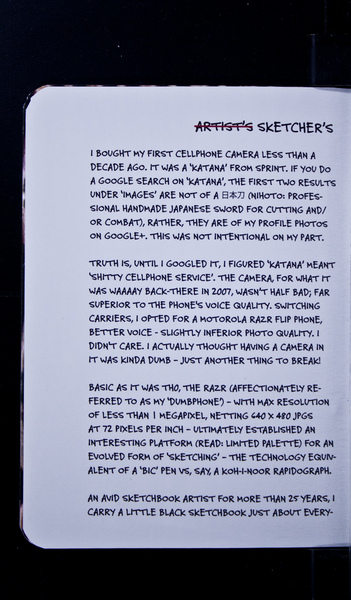 ARTIST'S SKETCHER'S
I BOUGHT MY FIRST CELLPHONE CAMERA LESS THAN A
DECADE AGO. IT WAS A 'KATANA' FROM SPRINT. IF YOU DO
A GOOGLE SEARCH ON 'KATANA', THE FIRST TWO RESULTS
UNDER 'IMAGES' ARE NOT OF A 日本刀 (NIHOTO: PROFES-
SIONAL HANDMADE JAPANESE SWORD FOR CUTTING AND/
OR COMBAT), RATHER, THEY ARE OF MY PROFILE PHOTOS
ON GOOGLE+. THIS WAS NOT INTENTIONAL ON MY PART.
TRUTH IS, UNTIL I GOOGLED IT, I FIGURED 'KATANA' MEANT
'SHITTY CELLPHONE SERVICE'. THE CAMERA, FOR WHAT IT
WAS WAAAAY BACK-THERE IN 2007, WASN'T HALF BAD; FAR
SUPERIOR TO THE PHONE'S VOICE QUALITY. SWITCHING
CARRIERS, I OPTED FOR A MOTOROLA RAZR FLIP PHONE,
BETTER VOICE - SLIGHTLY INFERIOR PHOTO QUALITY. I
DIDN'T CARE. I ACTUALLY THOUGHT HAVING A CAMERA IN
IT WAS KINDA DUMB - JUST ANOTHER THING TO BREAK!
BASIC AS IT WAS THO, THE RAZR (AFFECTIONATELY RE-
FERRED TO AS MY 'DUMBPHONE') - WITH MAX RESOLUTION
OF LESS THAN 1 MEGAPIXEL, NETTING 640 X 480 JPGS
AT 72 PIXELS PER INCH - ULTIMATELY ESTABLISHED AN
INTERESTING PLATFORM (READ: LIMITED PALETTE) FOR AN
EVOLVED FORM OF 'SKETCHING' - THE TECHNOLOGY EQUIV-
ALENT OF A 'BIC' PEN VS, SAY, A KOH-I-NOOR RAPIDOGRAPH.
AN AVID SKETCHBOOK ARTIST FOR MORE THAN 25 YEARS, I
CARRY A LITTLE BLACK SKETCHBOOK JUST ABOUT EVERY-